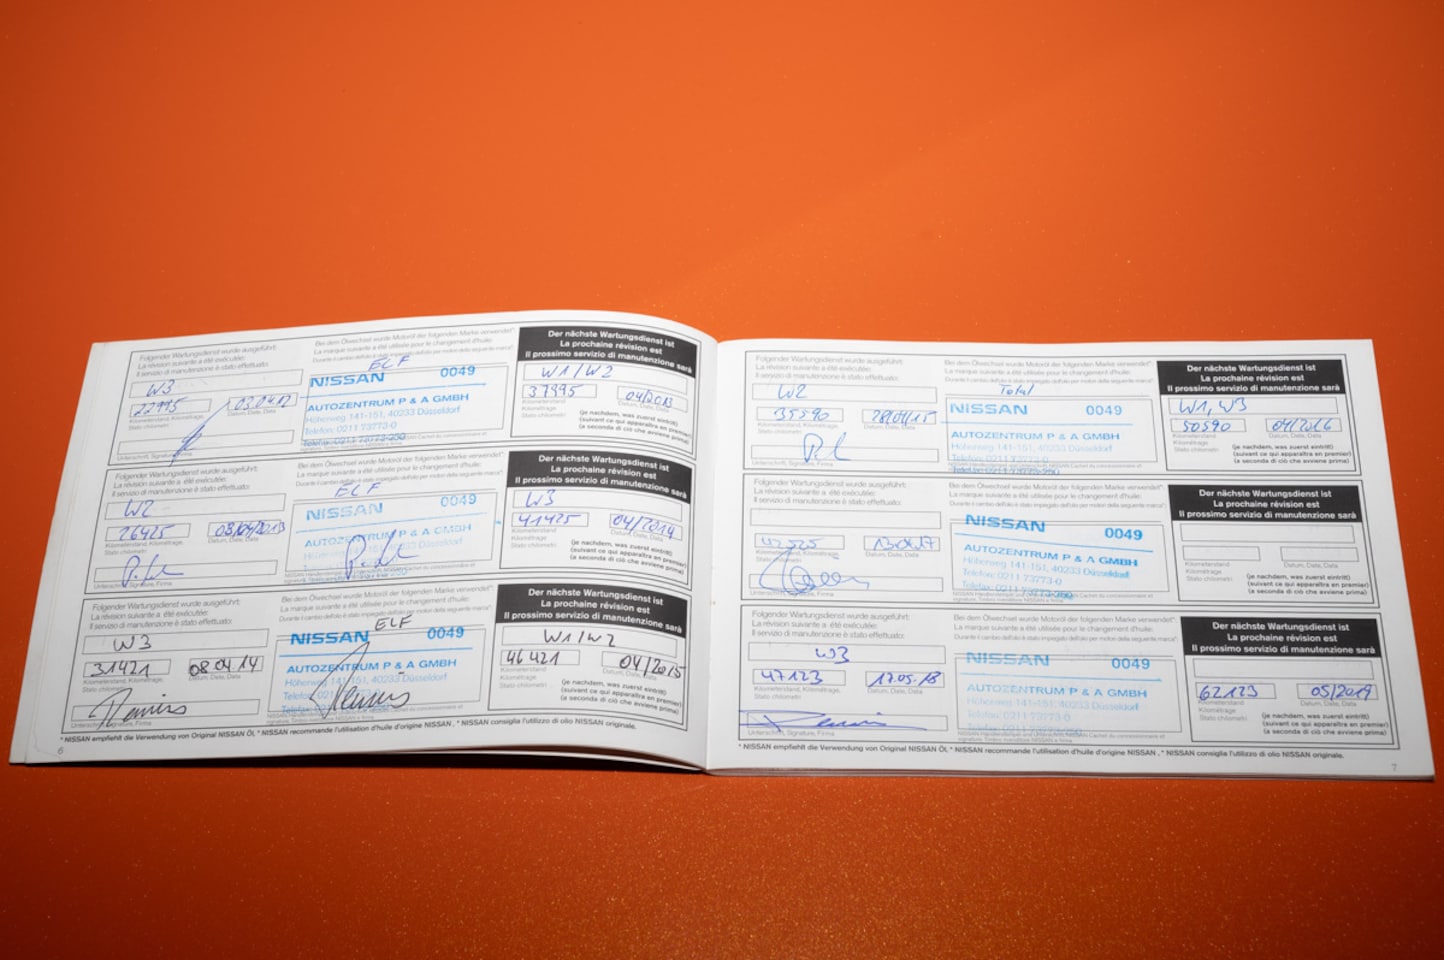 Folgender Wartungsdienst wurde ausgeführt:
La révision suivante a été exécutée:
Il servizio di manutenzione è stato effettuato:
W3
22995 03.04.12
Kilometerstand, Kilométrage, Stato chilometri
Datum, Date, Data
Unterschrift, Signature, Firma
Bei dem Ölwechsel wurde Motoröl der folgenden Marke verwendet*:
La marque suivante a été utilisée pour le changement d'huile:
Durante il cambio dell'olio è stato impiegato dell'olio per motori della seguente marca*:
ELF
NISSAN 0049
AUTOZENTRUM P & A GMBH
Höherweg 141-151, 40233 Düsseldorf
Telefon: 0211 73773-0
Telefax: 0211 73773-250
Der nächste Wartungsdienst ist
La prochaine révision est
Il prossimo servizio di manutenzione sarà
W1/W2
37995 04/2013
Kilometerstand
Kilométrage
Stato chilometri
Datum, Date, Data
(je nachdem, was zuerst eintritt)
(suivant ce qui apparaîtra en premier)
(a seconda di ciò che avviene prima)
Folgender Wartungsdienst wurde ausgeführt:
La révision suivante a été exécutée:
Il servizio di manutenzione è stato effettuato:
W2
26425 08/04/2013
Kilometerstand, Kilométrage, Stato chilometri
Datum, Date, Data
Unterschrift, Signature, Firma
Bei dem Ölwechsel wurde Motoröl der folgenden Marke verwendet*:
La marque suivante a été utilisée pour le changement d'huile:
Durante il cambio dell'olio è stato impiegato dell'olio per motori della seguente marca*:
ELF
NISSAN 0049
AUTOZENTRUM P & A GMBH
Der nächste Wartungsdienst ist
La prochaine révision est
Il prossimo servizio di manutenzione sarà
W3
41425 04/2014
Kilometerstand
Kilométrage
Stato chilometri
Datum, Date, Data
(je nachdem, was zuerst eintritt)
(suivant ce qui apparaîtra en premier)
(a seconda di ciò che avviene prima)
Folgender Wartungsdienst wurde ausgeführt:
La révision suivante a été exécutée:
Il servizio di manutenzione è stato effettuato:
W3
31421 08.04.14
Kilometerstand, Kilométrage, Stato chilometri
Datum, Date, Data
Unterschrift, Signature, Firma
Bei dem Ölwechsel wurde Motoröl der folgenden Marke verwendet*:
La marque suivante a été utilisée pour le changement d'huile:
Durante il cambio dell'olio è stato impiegato dell'olio per motori della seguente marca*:
ELF
NISSAN 0049
AUTOZENTRUM P & A GMBH
Höherweg 141-151, 40233 Düsseldorf
Der nächste Wartungsdienst ist
La prochaine révision est
Il prossimo servizio di manutenzione sarà
W1/W2
46421 04/2015
Kilometerstand
Kilométrage
Stato chilometri
Datum, Date, Data
(je nachdem, was zuerst eintritt)
(suivant ce qui apparaîtra en premier)
(a seconda di ciò che avviene prima)
* NISSAN empfiehlt die Verwendung von Original NISSAN Öl, * NISSAN recommande l'utilisation d'huile d'origine NISSAN, * NISSAN consiglia l'utilizzo di olio NISSAN originale.
6
Folgender Wartungsdienst wurde ausgeführt:
La révision suivante a été exécutée:
Il servizio di manutenzione è stato effettuato:
W2
35590 28/04/15
Kilometerstand, Kilométrage, Stato chilometri
Datum, Date, Data
Unterschrift, Signature, Firma
Bei dem Ölwechsel wurde Motoröl der folgenden Marke verwendet*:
La marque suivante a été utilisée pour le changement d'huile:
Durante il cambio dell'olio è stato impiegato dell'olio per motori della seguente marca*:
Total
NISSAN 0049
AUTOZENTRUM P & A GMBH
Höherweg 141-151, 40233 Düsseldorf
Telefon: 0211 73773-0
Der nächste Wartungsdienst ist
La prochaine révision est
Il prossimo servizio di manutenzione sarà
W1, W3
50590 04/2016
Kilometerstand
Kilométrage
Stato chilometri
Datum, Date, Data
(je nachdem, was zuerst eintritt)
(suivant ce qui apparaîtra en premier)
(a seconda di ciò che avviene prima)
Folgender Wartungsdienst wurde ausgeführt:
La révision suivante a été exécutée:
Il servizio di manutenzione è stato effettuato:
42525 13.04.17
Kilometerstand, Kilométrage, Stato chilometri
Datum, Date, Data
Bei dem Ölwechsel wurde Motoröl der folgenden Marke verwendet*:
La marque suivante a été utilisée pour le changement d'huile:
Durante il cambio dell'olio è stato impiegato dell'olio per motori della seguente marca*:
NISSAN 0049
AUTOZENTRUM P & A GMBH
Höherweg 141-151, 40233 Düsseldorf
Telefon: 0211 73773-0
Telefax: 0211 73773-250
Der nächste Wartungsdienst ist
La prochaine révision est
Il prossimo servizio di manutenzione sarà
Kilometerstand
Kilométrage
Stato chilometri
Datum, Date, Data
(je nachdem, was zuerst eintritt)
(suivant ce qui apparaîtra en premier)
(a seconda di ciò che avviene prima)
Folgender Wartungsdienst wurde ausgeführt:
La révision suivante a été exécutée:
Il servizio di manutenzione è stato effettuato:
W3
47123 17.05.18
Kilometerstand, Kilométrage, Stato chilometri
Datum, Date, Data
Unterschrift, Signature, Firma
Bei dem Ölwechsel wurde Motoröl der folgenden Marke verwendet*:
La marque suivante a été utilisée pour le changement d'huile:
Durante il cambio dell'olio è stato impiegato dell'olio per motori della seguente marca*:
NISSAN 0049
AUTOZENTRUM P & A GMBH
Höherweg 141-151, 40233 Düsseldorf
Telefon: 0211 73773-0
Der nächste Wartungsdienst ist
La prochaine révision est
Il prossimo servizio di manutenzione sarà
62123 05/2019
Kilometerstand
Kilométrage
Stato chilometri
Datum, Date, Data
(je nachdem, was zuerst eintritt)
(suivant ce qui apparaîtra en premier)
(a seconda di ciò che avviene prima)
* NISSAN empfiehlt die Verwendung von Original NISSAN Öl, * NISSAN recommande l'utilisation d'huile d'origine NISSAN, * NISSAN consiglia l'utilizzo di olio NISSAN originale.
7